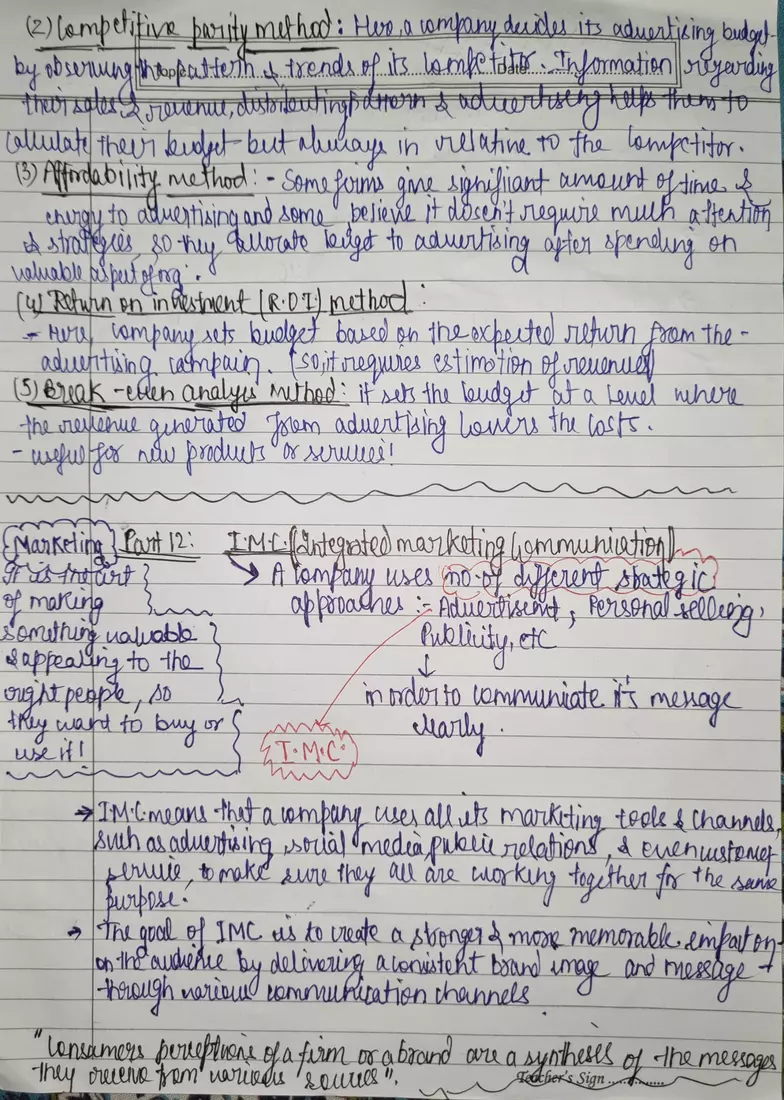 (2) Competitive parity method: Here, a company decides its advertising budget
by observing the pattern & trends of its competitor. Information regarding
their sales & revenue, distributing pattern & advertising helps them to
calculate their budget but always in relative to the competitor.
(3) Affordability method: - Some firms give significant amount of time &
energy to advertising and some believe it doesn't require much attention
& strategies, so they allocate budget to advertising after spending on
valuable aspect of org.
(4) Return on investment (R.O.I) method:
- Here, company sets budget based on the expected return from the
advertising campain. (so, it requires estimation of revenue)
(5) Break-even analysis method: it sets the budget at a level where
the revenue generated from advertising the costs.
- useful for new products or services!
Marketing Part 12: I.M.C (Integrated marketing Communication)
It is the art
of making
something valuable
& appealing to the
right people, so
they want to buy or
use it!
A company uses no. of different strategic
approaches :- Advertisemt, Personal selling,
Publicity, etc
in order to communicate it's message
clearly.
I.M.C.
I.M.C means that a company uses all its marketing tools & channels,
such as advertising, social media, public relations, & even customer
service, to make sure they all are working together for the same
purpose.
The goal of IMC is to create a stronger & more memorable impact on
on the audience by delivering a consistent brand image and message
through various communication channels
"Consumers perceptions of a firm or a brand are a syntheses of the messages
they receive from various sources".
Teacher's Sign ..............